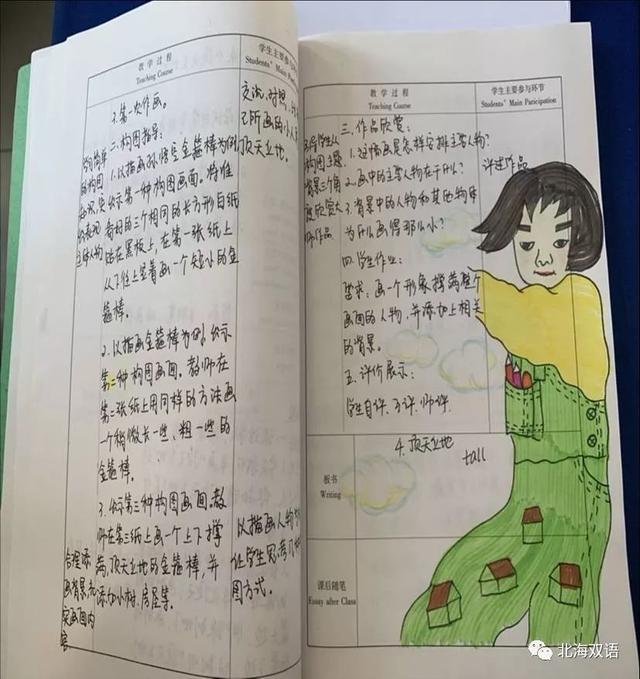 教学过程
Teaching Course
学生主要参与环节
Students' Main Participation
3.第一次作画。
二.构图指导:
1.以描画孙悟空金箍棒为例,
出示第一种构图画面。将准
备好的三个相同的长方形白纸
贴在黑板上,在第一张纸上
从下往上竖着画一个短小的金
箍棒。
2.以描画金箍棒为例,出示
第二种构图画面。教师在
第二张纸上用同样的方法画
一个稍微长一些、粗一些的
金箍棒。
3.出示第三种构图画面,教
师在第三张纸上画一个上下撑
满,顶天立地的金箍棒,并
添加小树、房屋等。
合理添
画背景,充
实画面内
容
交流,对照,
己所画的小人
顶天立地。
以描画人物
让学生思考几种
图方式。
教学过程
Teaching Course
学生主要参与环节
Students' Main Participation
三.作品欣赏:
1.这幅画是怎样安排主要人物?
2.画中的主要人物在干什么?
3.背景中的人物和其他物体
为什么画得那么小?
评述作品
四.学生作业:
要求:画一个形象撑满整个
画面的人物,并添加上相关
的背景。
五.评价展示:
学生自评.互评.师评.
板书
Writing
4.顶天立地
tall
课后随笔
Essay after Class
北海双语